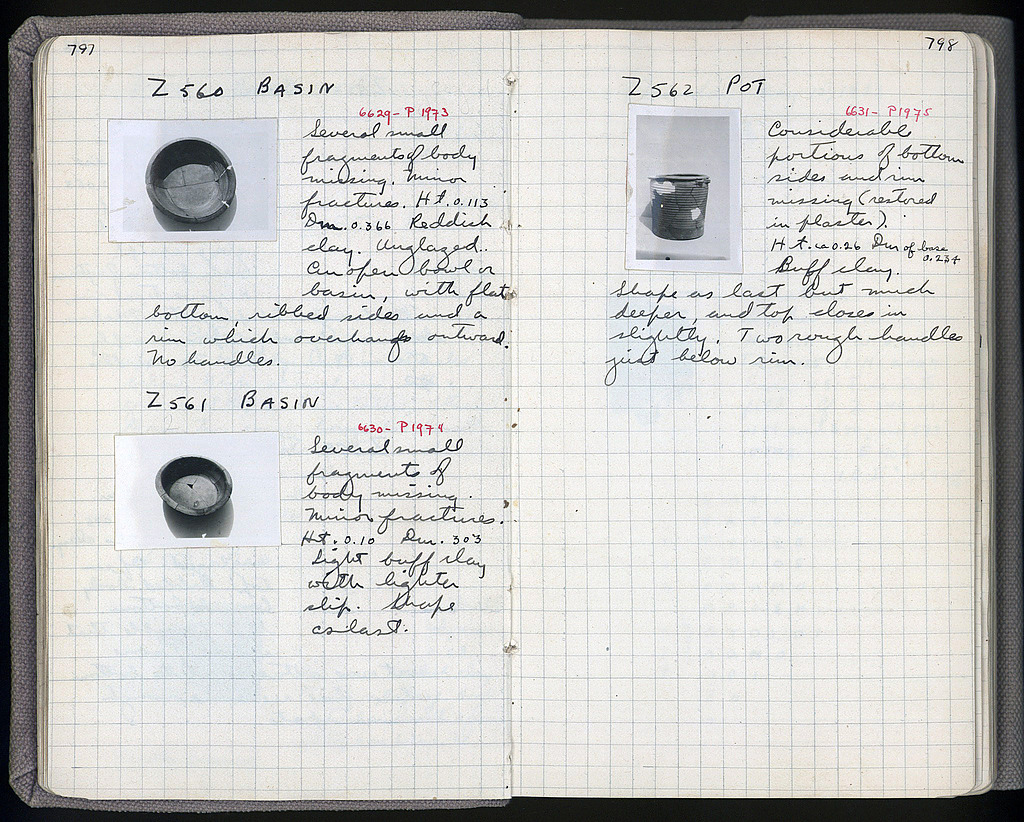 797
Z 560 BASIN
6629 - P 1973
Several small
fragments of body
missing. Minor
fractures. Ht. 0.113
Dm. 0.366 Reddish
clay. Unglazed.
An open bowl or
basin, with flat
bottom, ribbed sides and a
rim which overhangs outward.
No handles.
Z 561 BASIN
6630 - P 1974
Several small
fragments of
body missing.
Minor fractures.
Ht. 0.10 Dm. 303
Light buff clay
with lighter
slip. Shape
as last.
798
Z 562 POT
6631 - P 1975
Considerable
portions of bottom
sides and rim
missing (restored
in plaster).
Ht. ca 0.26 Dm of base
0.234
Buff clay.
Shape as last but much
deeper, and top closes in
slightly. Two rough handles
just below rim.